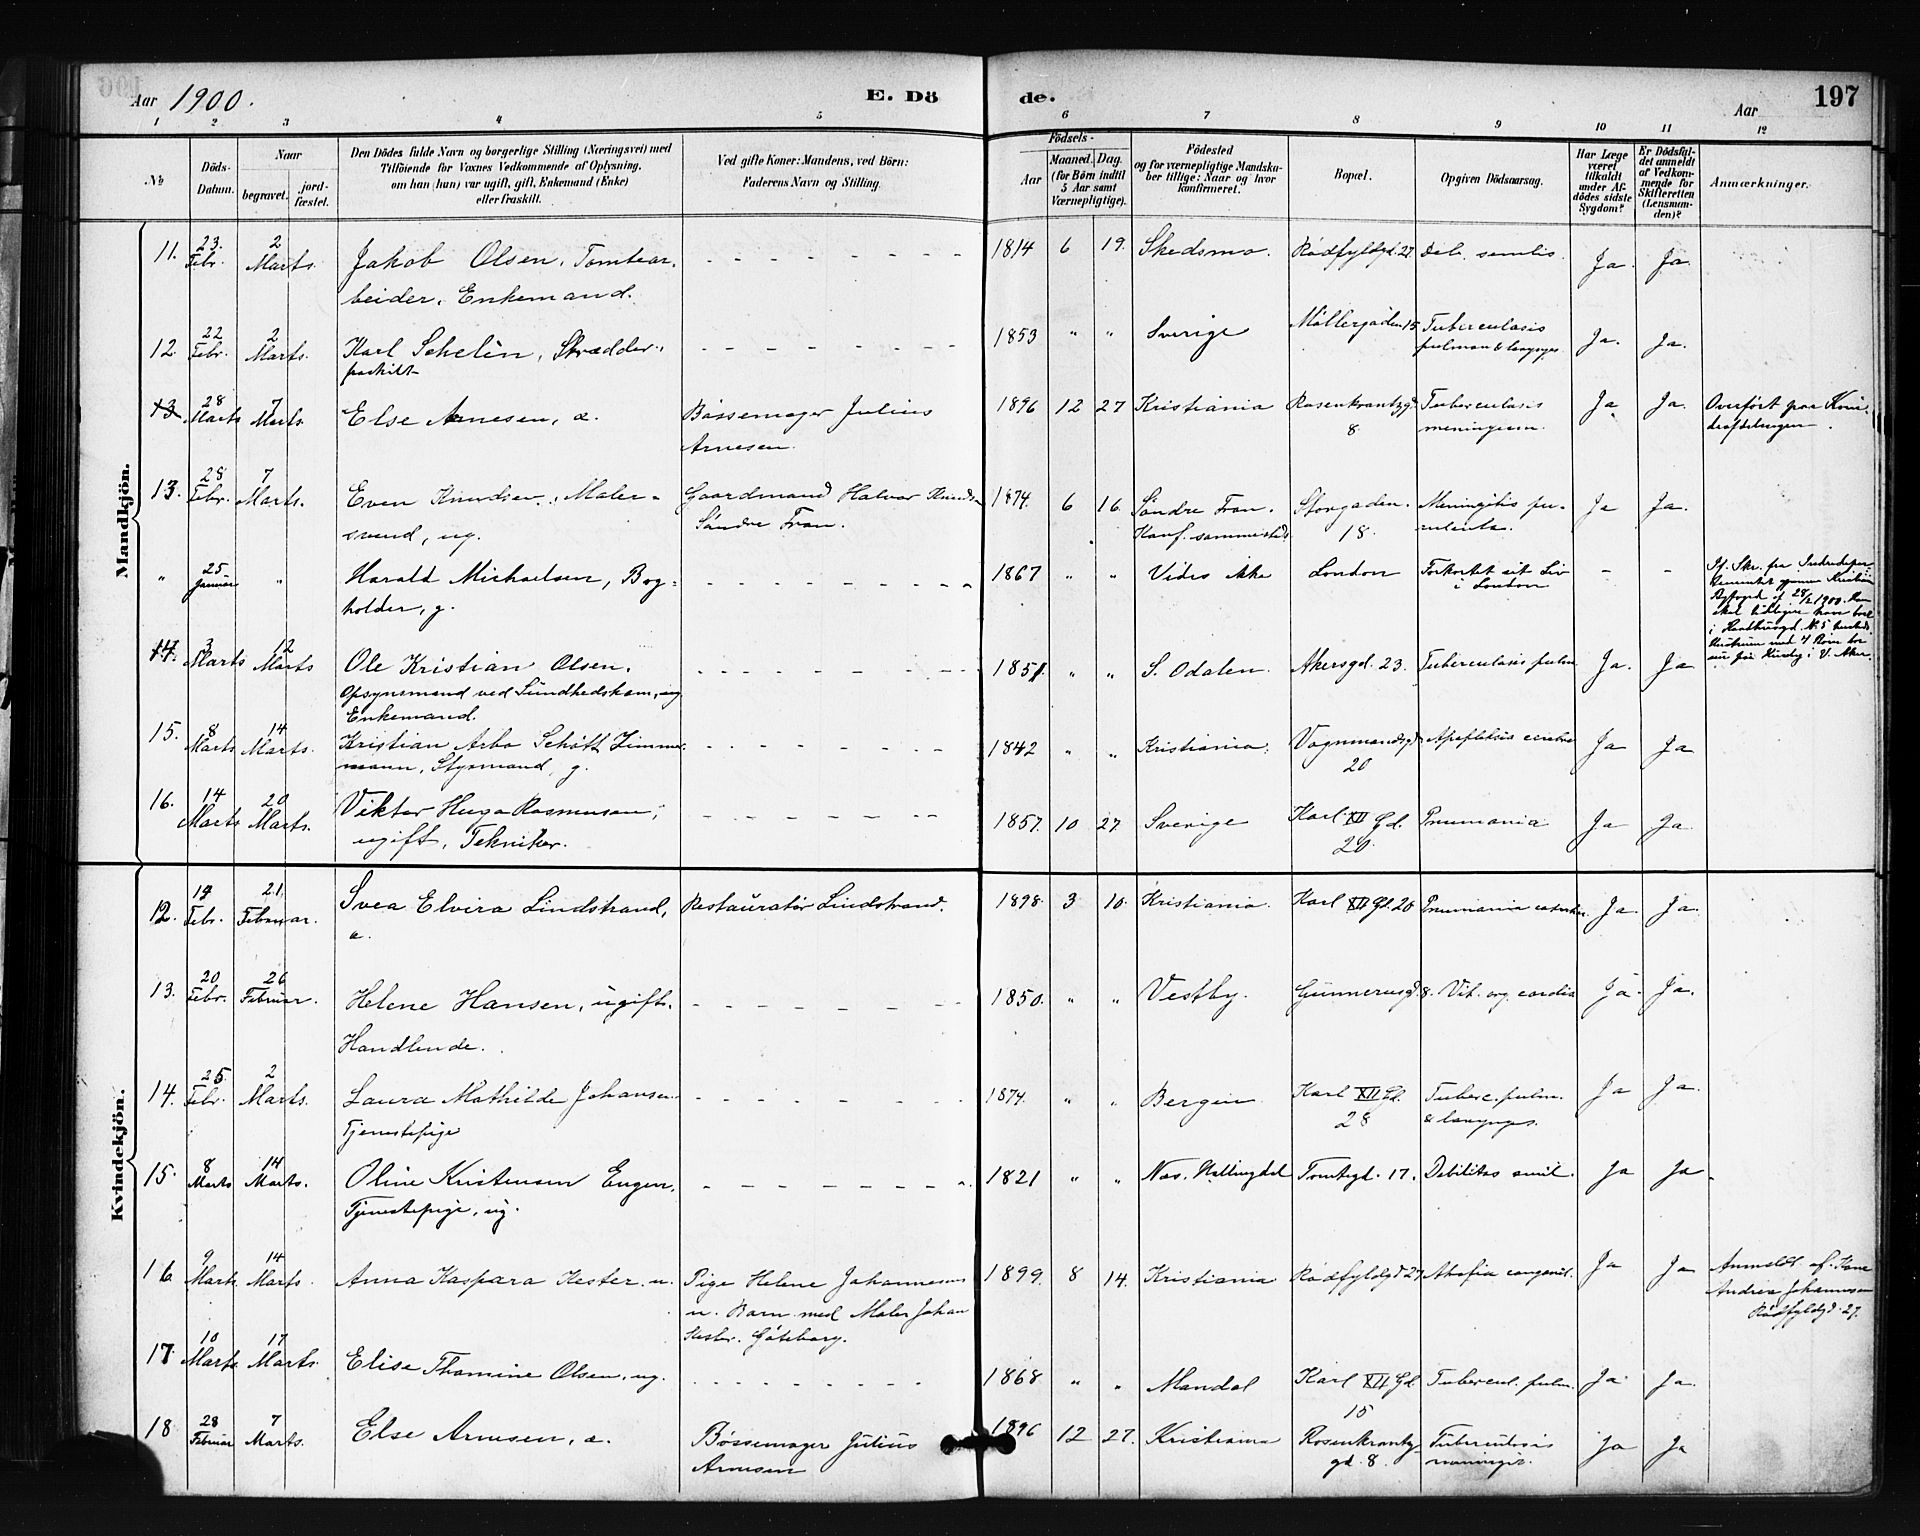 Aar 1900.
E. Dö
de.
Aar
197
1 2 3 4 5 6 7 8 9 10 11 12
No
Döds-Datum.
Naar
begravet.
jord-fæstet.
Den Dödes fulde Navn og borgerlige Stilling (Næringsvei) med
Tilföiende for Voxnes Vedkommende af Oplysning.
om han (hun) var ugift, gift, Enkemand (Enke)
eller fraskilt.
Ved gifte Koner: Mandens, ved Börn:
Faderens Navn og Stilling.
Födsels-
Aar
Maaned. Dag.
(for Börn indtil
5 Aar samt
Værnepligtige).
Födested
og for værnepligtige Mandska-
ber tillige: Naar og hvor
konfirmeret.
Bopæl.
Opgiven Dödsaarsag.
Har Læge
været
tilkaldt
under Af-
dödes sidste
Sygdom?
Er Dödsfal-
det anmeldt
af Vedkom-
mende for
Skifteretten
(Lensman-
den)?
Anmærkninger.
Mandkjön.
11. 23. Febr. 2 Marts. Jakob Olsen, Tomtear-
beider, Enkemand. 1814 6 19. Skedsmo. Rödfyldgd. 27. Deb. senilis. Ja. Ja.
12. 22 Febr. 2 Marts. Karl Schelin, Skrædder,
fraskilt 1853 " " Sverige Möllergaden 15 Tuberculosis
pulmon & larynges Ja. Ja.
13. 28 Marts 7 Marts. Else Arnesen, æ. Bössemager Julius
Arnesen. 1896 12 27 Kristiania Rosenkrantzgd
8 Tuberculosis
meningeum. Ja Ja. Overfört paa Kvin-
deafdelingen.
13. 28 Febr. 7 Marts. Even Knudsen, Maler-
svend, ug. Gaardmand Halvor Knudsen
Söndre Fron. 1874. 6 16. Söndre Fron.
Konf. sammesteds Storgaden.
18. Meningitis pu-
rulenta. Ja Ja.
" 25 Januar " Harald Michaelsen, Bog-
holder, g. 1867 " " Vides ikke London Forkortet sit Liv
i London - - If. Skr. fra
28/2 1900.
14. 3 Marts 12 Marts Ole Kristian Olsen.
Opsynsmand ved Sundhedskom., ug
Enkemand. 1851. " " S. Odalen. Akersgd. 23. Tuberculosis pulm. Ja. Ja
15. 8 Marts 14 Marts. Kristian Arbo Schött Zimmer-
mann, Styrmand, g. 1842 " " Kristiania. Vognmandsgd
20 Apoplexia cerebri Ja Ja
16. 14 Marts 20 Marts. Viktor Hugo Rasmussen,
ugift, Tekniker. 1857. 10 27. Sverige Karl XII Gd.
20. Pneumonia Ja Ja.
Kvindekjön.
12. 14 Febr. 21. Februar. Svea Elvira Lindstrand,
æ. Restauratör Lindstrand. 1898. 3 10. Kristiania. Karl XII Gd. 20 Pneumonia Ja. Ja.
13. 20. Febr. 26 Februar. Helene Hansen, ugift,
Handlende. 1850. " " Vestby. Gunnerusgd. 8. Vit. org. cordis Ja. Ja.
14. 25. Febr. 2 Marts. Laura Mathilde Johansen
Tjenestepige 1874. " " Bergen Karl XII Gd.
28 Tuberc. pulm.
& larynges. Ja Ja.
15. 8 Marts 14 Marts. Oline Kristensen Engen,
Tjenestepige, ug. 1821 " " Nes. Hallingdal Tomtegd. 17. Debilitas senil. Ja Ja
16 9 Marts 14 Marts. Anna Kaspara Kester u. Pige Helene Johannesen
u. Barn med Maler Johan
Kester. Göteborg. 1899. 8 14. Kristiania Rödfyldgd 27 Atrofia congenit. Ja Ja Anmeldt af Kone
Andrea Johannesen
Rödfyldgd. 27.
17. 10 Marts 17 Marts. Elise Thomine Olsen, ug. 1868 " " Mandal Karl XII Gd.
15 Tubercul. pulm. Ja Ja.
18 28 Februar 7 Marts. Else Arnesen, æ. Bössemager Julius
Arnesen 1896 12 27. Kristiania Rosenkrantz-
gd. 8. Tuberculosis
meningit. Ja Ja